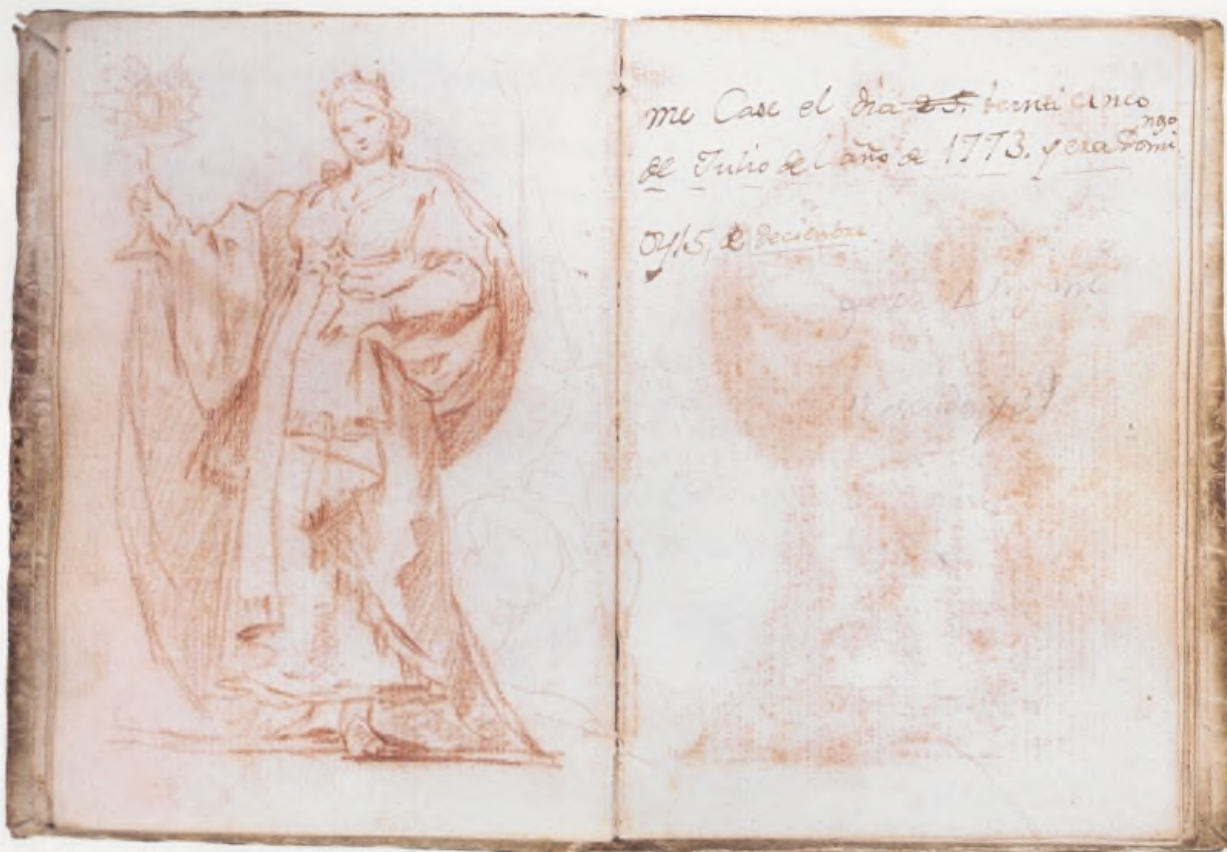 me Case el dia 25. beinti cinco
de Julio del año de 1773. y era Domi
ngo
Oy 15, de Deciembre